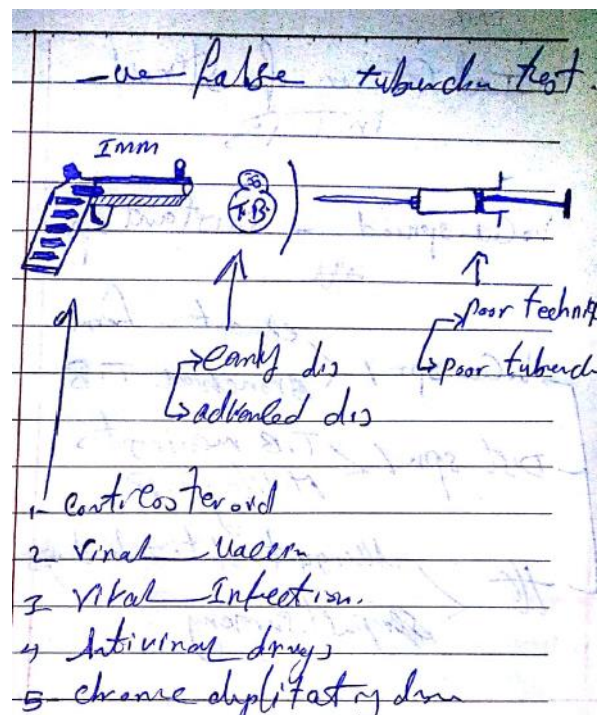 -ve false tuberculin test.
Imm
T.B.
poor techniq
poor tubercu
early dis
advanced dis
1- corticosteroid
2- viral vaccin
3- viral Infection.
4- Antiviral drugs
5- chronic